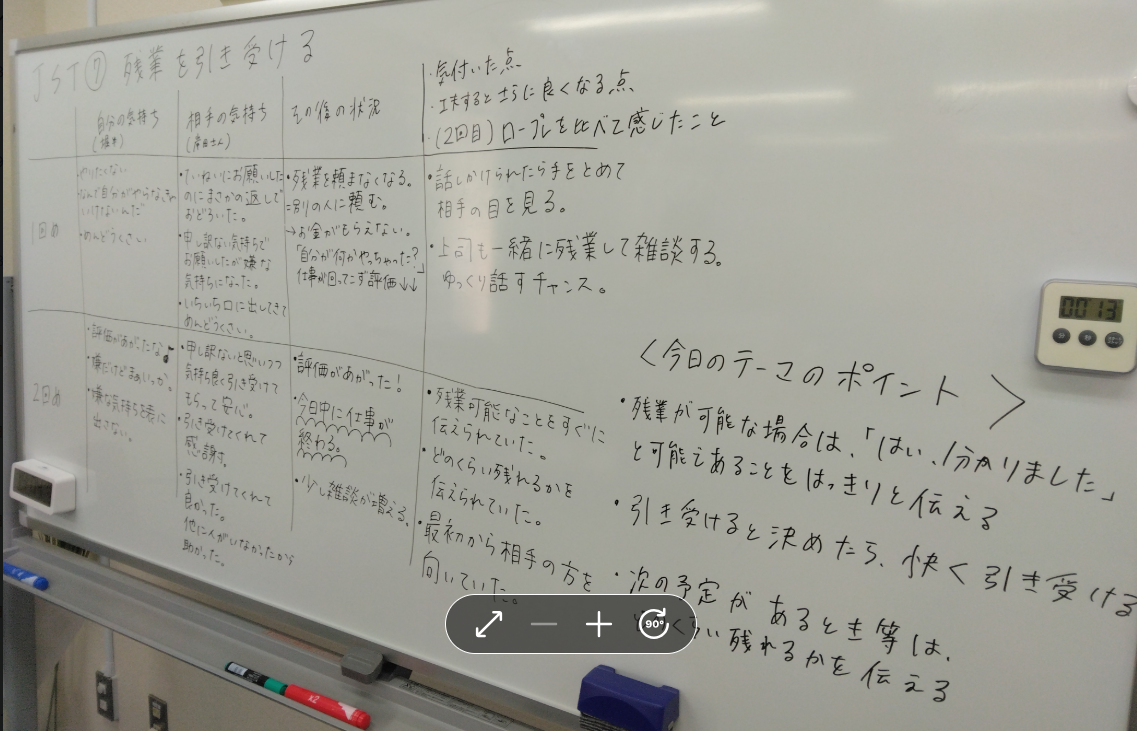 JST⑦ 残業を引き受ける
自分の気持ち
相手の気持ち
その後の状況
・気付いた点
・工夫するとさらに良くなる点
・(2回目)ロープレを比べて感じたこと
1回め
・やりたくない
・なんで自分がやらなきゃ
いけないんだ
・めんどうくさい
・ていねいにお願いした
のにまさかの返しで
おどろいた。
・申し訳ない気持ちで
お願いしたが嫌な
気持ちになった。
・いちいち口に出してきて
めんどうくさい。
・残業を頼まなくなる。
=別の人に頼む。
→お金がもらえない。
「自分が何かやっちゃった?」
仕事が回ってこず評価↓↓
・話しかけられたら手をとめて
相手の目を見る。
・上司も一緒に残業して雑談する。
ゆっくり話すチャンス。
2回め
・評価があがったな♪
・嫌だけどまぁいっか。
・嫌な気持ちを表に
出さない。
・申し訳ないと思いつつ
気持ち良く引き受けて
もらって安心。
・引き受けてくれて
感謝。
・引き受けてくれて
良かった。
他に人がいなかったから
助かった。
・評価があがった!
・今日中に仕事が
終わる。
・少し雑談が増える。
・残業可能なことをすぐに
伝えられていた。
・どのくらい残れるかを
伝えられていた。
・最初から相手の方を
向いていた。
<今日のテーマのポイント>
・残業が可能な場合は、「はい、分かりました」
と可能であることをはっきりと伝える
・引き受けると決めたら、快く引き受ける
・次の予定があるとき等は、
どのくらい残れるかを伝える
00 13
x2
90°